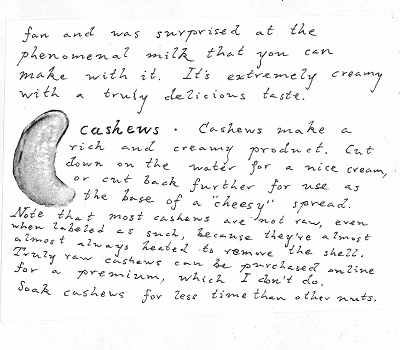 fan and was surprised at the
phenomenal milk that you can
make with it. It's extremely creamy
with a truly delicious taste.
cashews. Cashews make a
rich and creamy product. Cut
down on the water for a nice cream,
or cut back further for use as
the base of a "cheesy" spread.
Note that most cashews are not raw, even
when labeled as such, because they're almost
almost always heated to remove the shell.
Truly raw cashews can be purchased online
for a premium, which I don't do.
Soak cashews for less time than other nuts.